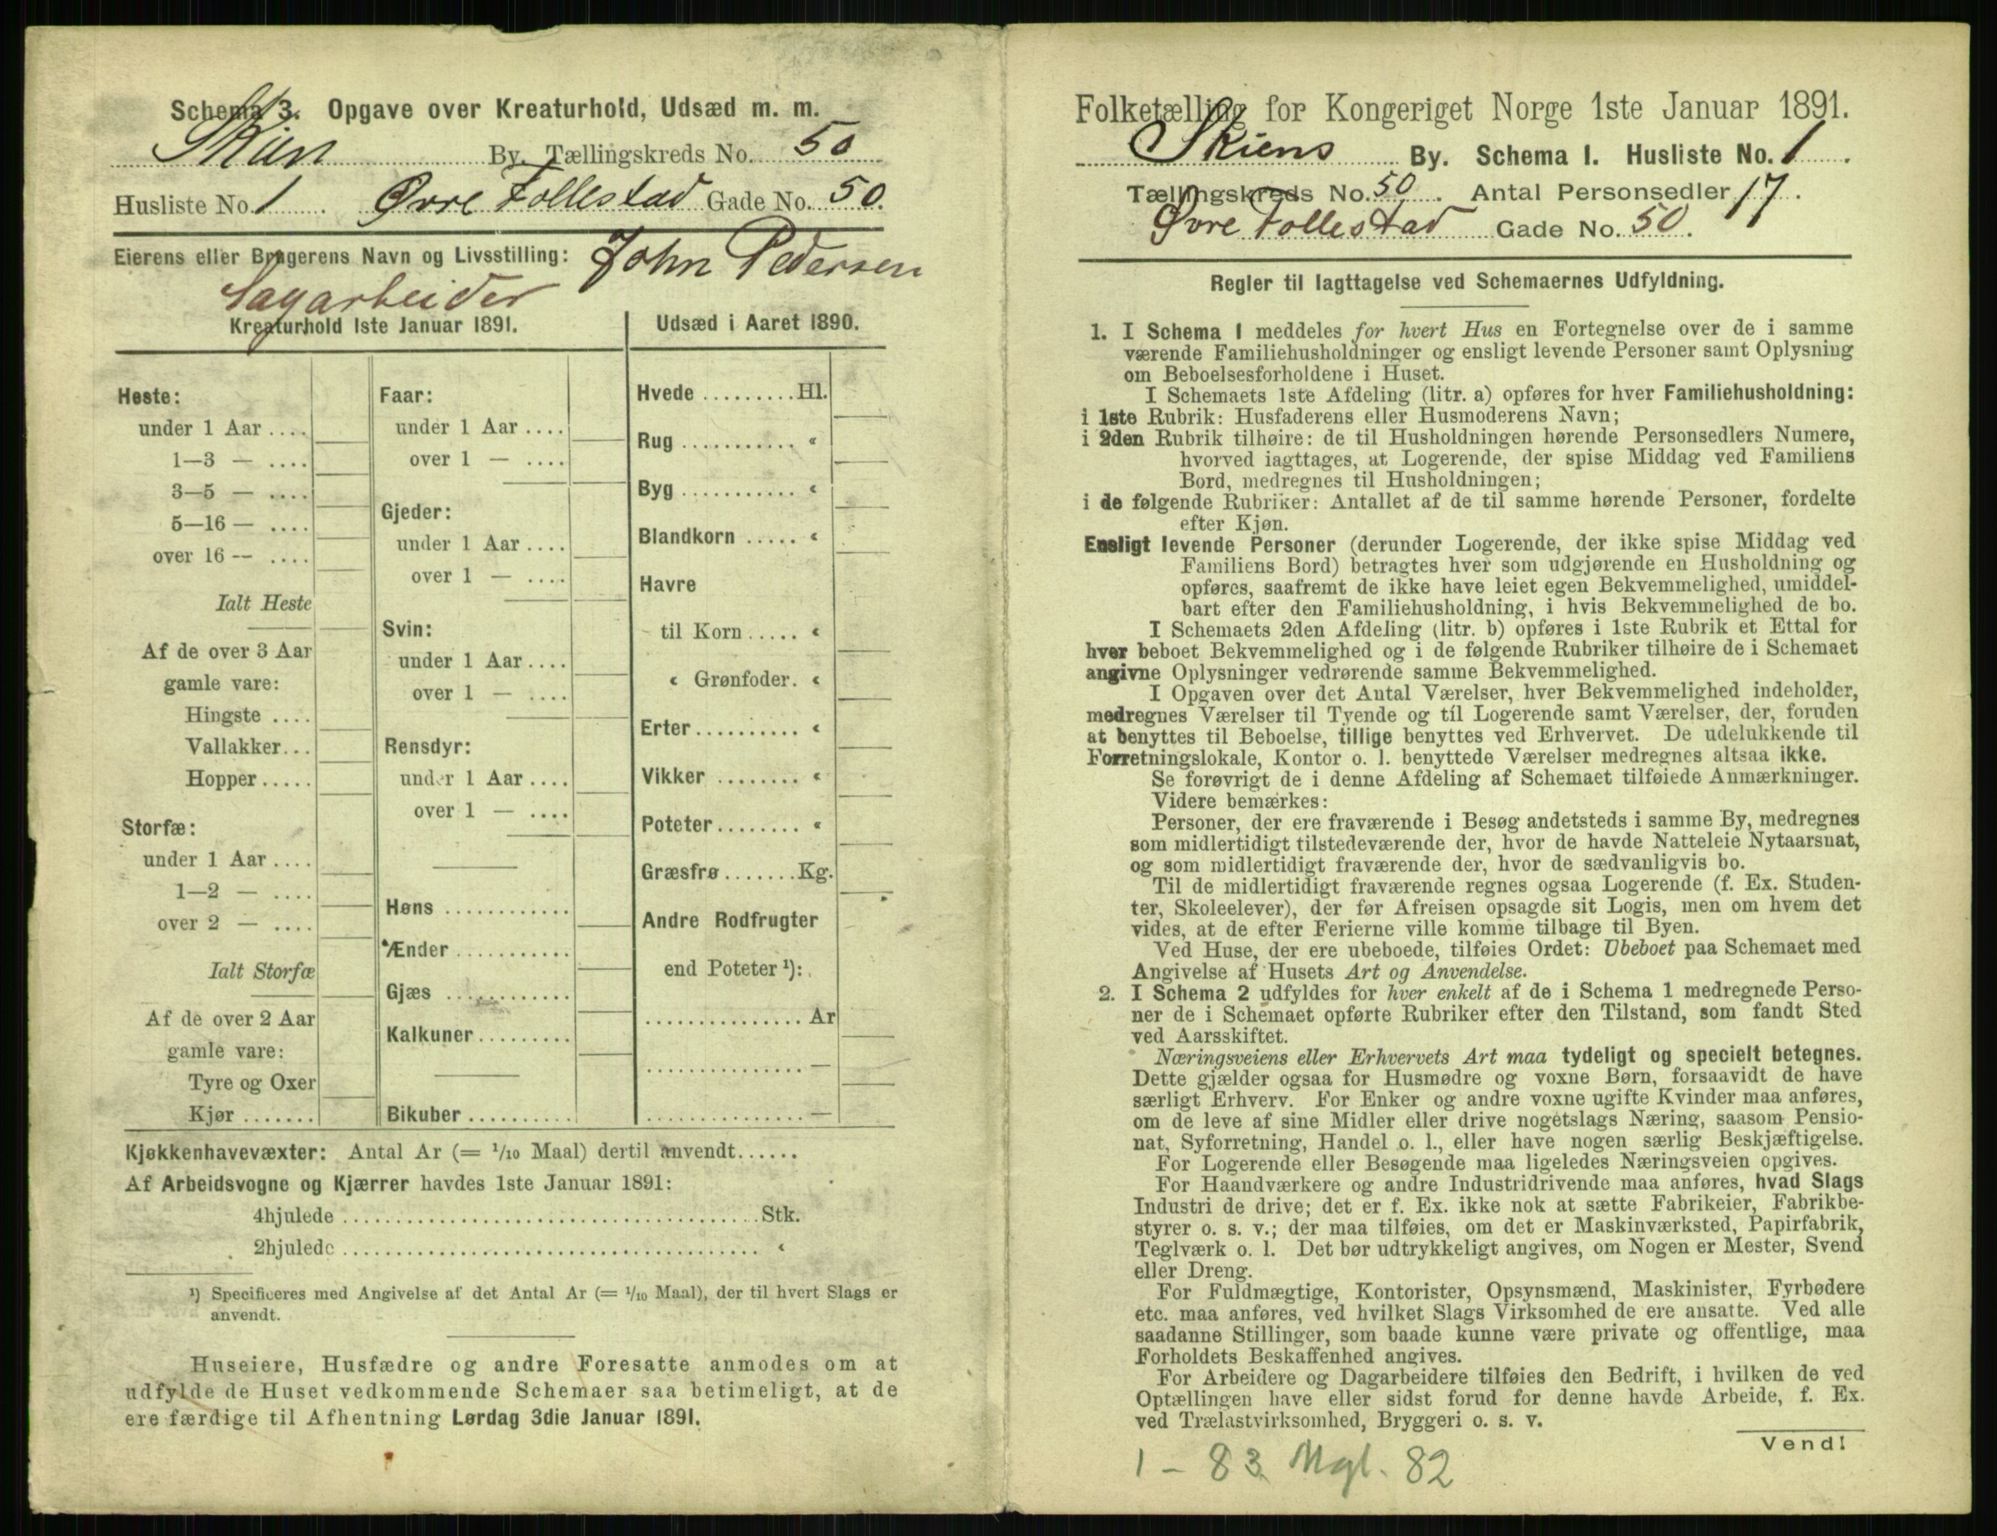 Schema 3. Opgave over Kreaturhold, Udsæd m. m.
Skien By. Tællingskreds No. 50
Husliste No. 1. Øvre Follestad Gade No. 50.
Eierens eller Brugerens Navn og Livsstilling: John Pedersen
Sagarbeider
Kreaturhold 1ste Januar 1891.
Udsæd i Aaret 1890.
Heste:
under 1 Aar ....
1—3 — ....
3—5 — ....
5—16 — ....
over 16 — ....
Ialt Heste
Af de over 3 Aar
gamle vare:
Hingste ....
Vallakker...
Hopper.....
Storfæ:
under 1 Aar ....
1—2 — ....
over 2 — ....
Ialt Storfæ
Af de over 2 Aar
gamle vare:
Tyre og Oxer
Kjør.......
Faar:
under 1 Aar ....
over 1 — ....
Gjeder:
under 1 Aar ....
over 1 — ....
Svin:
under 1 Aar ....
over 1 — ....
Rensdyr:
under 1 Aar ....
over 1 — ....
Høns ............
Ænder ...........
Gjæs ............
Kalkuner.........
Bikuber ..........
Hvede .........Hl.
Rug .......... «
Byg ........... «
Blandkorn ..... «
Havre
til Korn ..... «
« Grønfoder. «
Erter .......... «
Vikker ........ «
Poteter........ «
Græsfrø .......Kg.
Andre Rodfrugter
end Poteter ¹):.
............... Ar
............... —
............... —
Kjøkkenhavevæxter: Antal Ar (= 1/10 Maal) dertil anvendt......
Af Arbeidsvogne og Kjærrer havdes 1ste Januar 1891:
4hjulede ........................................Stk.
2hjulede ........................................ «
¹) Specificeres med Angivelse af det Antal Ar (= 1/10 Maal), der til hvert Slags er
anvendt.
Huseiere, Husfædre og andre Foresatte anmodes om at
udfylde de Huset vedkommende Schemaer saa betimeligt, at de
ere færdige til Afhentning Lørdag 3die Januar 1891.
Folketælling for Kongeriget Norge 1ste Januar 1891.
Skiens By. Schema I. Husliste No. 1.
Tællingskreds No. 50. Antal Personsedler 17.
Øvre Follestad Gade No. 50.
Regler til Iagttagelse ved Schemaernes Udfyldning.
1. I Schema 1 meddeles for hvert Hus en Fortegnelse over de i samme
værende Familiehusholdninger og ensligt levende Personer samt Oplysning
om Beboelsesforholdene i Huset.
I Schemaets 1ste Afdeling (litr. a) opføres for hver Familiehusholdning:
i 1ste Rubrik: Husfaderens eller Husmoderens Navn;
i 2den Rubrik tilhøire: de til Husholdningen hørende Personsedlers Numere,
hvorved iagttages, at Logerende, der spise Middag ved Familiens
Bord, medregnes til Husholdningen;
i de følgende Rubriker: Antallet af de til samme hørende Personer, fordelte
efter Kjøn.
Ensligt levende Personer (derunder Logerende, der ikke spise Middag ved
Familiens Bord) betragtes hver som udgjørende en Husholdning og
opføres, saafremt de ikke have leiet egen Bekvemmelighed, umiddel-
bart efter den Familiehusholdning, i hvis Bekvemmelighed de bo.
I Schemaets 2den Afdeling (litr. b) opføres i 1ste Rubrik et Ettal for
hver beboet Bekvemmelighed og i de følgende Rubriker tilhøire de i Schemaet
angivne Oplysninger vedrørende samme Bekvemmelighed.
I Opgaven over det Antal Værelser, hver Bekvemmelighed indeholder,
medregnes Værelser til Tyende og til Logerende samt Værelser, der, foruden
at benyttes til Beboelse, tillige benyttes ved Erhvervet. De udelukkende til
Forretningslokale, Kontor o. l. benyttede Værelser medregnes altsaa ikke.
Se forøvrigt de i denne Afdeling af Schemaet tilføiede Anmærkninger.
Videre bemærkes:
Personer, der ere fraværende i Besøg andetsteds i samme By, medregnes
som midlertidigt tilstedeværende der, hvor de havde Natteleie Nytaarsnat,
og som midlertidigt fraværende der, hvor de sædvanligvis bo.
Til de midlertidigt fraværende regnes ogsaa Logerende (f. Ex. Studen-
ter, Skoleelever), der før Afreisen opsagde sit Logis, men om hvem det
vides, at de efter Ferierne ville komme tilbage til Byen.
Ved Huse, der ere ubeboede, tilføies Ordet: Ubeboet paa Schemaet med
Angivelse af Husets Art og Anvendelse.
2. I Schema 2 udfyldes for hver enkelt af de i Schema 1 medregnede Perso-
ner de i Schemaet opførte Rubriker efter den Tilstand, som fandt Sted
ved Aarsskiftet.
Næringsveiens eller Erhvervets Art maa tydeligt og specielt betegnes.
Dette gjælder ogsaa for Husmødre og voxne Børn, forsaavidt de have
særligt Erhverv. For Enker og andre voxne ugifte Kvinder maa anføres,
om de leve af sine Midler eller drive nogetslags Næring, saasom Pensio-
nat, Syforretning, Handel o. l., eller have nogen særlig Beskjæftigelse.
For Logerende eller Besøgende maa ligeledes Næringsveien opgives.
For Haandværkere og andre Industridrivende maa anføres, hvad Slags
Industri de drive; det er f. Ex. ikke nok at sætte Fabrikeier, Fabrikbe-
styrer o. s. v.; der maa tilføies, om det er Maskinværksted, Papirfabrik,
Teglværk o. l. Det bør udtrykkeligt angives, om Nogen er Mester, Svend
eller Dreng.
For Fuldmægtige, Kontorister, Opsynsmænd, Maskinister, Fyrbødere
etc. maa anføres, ved hvilket Slags Virksomhed de ere ansatte. Ved alle
saadanne Stillinger, som baade kunne være private og offentlige, maa
Forholdets Beskaffenhed angives.
For Arbeidere og Dagarbeidere tilføies den Bedrift, i hvilken de ved
Optællingen have eller sidst forud for denne havde Arbeide, f. Ex.
ved Trælastvirksomhed, Bryggeri o. s. v.
Vend!
1 – 83. Mgl. 82